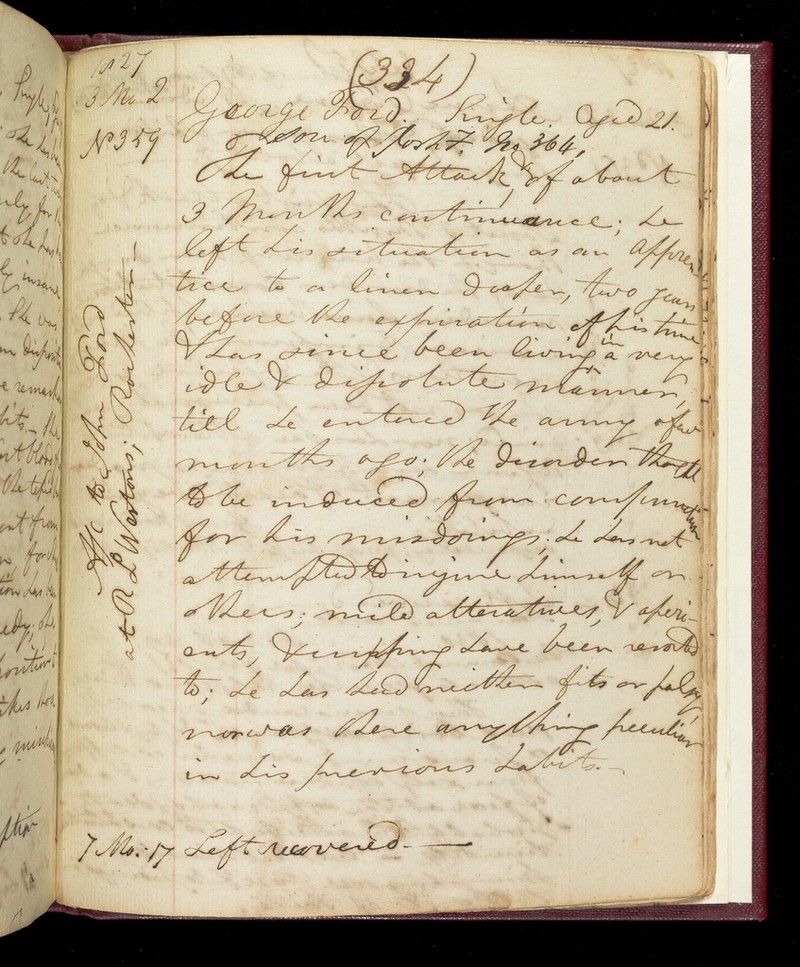 (334)
1827
3 Mo 2
No 359
George Ford. Single. Aged 21.
son of No 364,
The first Attack, & of about
3 Months continuance; he
left his situation as an appren
tice to a linen draper, two years
before the expiration of his time
& has since been living in a very
idle & dissolute manner,
till he entered the army a few
months ago; the disorder thought
to be induced from compunction
for his misdoings; he has not
attempted to injure himself or
others; mild alteratives, & aperi-
ents, & cupping have been resorted
to; he has had neither fits or palsy
nor was there anything peculiar
in his previous habits.—
7 Mo: 17 Left recovered.—
A/c to John Ford
at R L Westons; Rochester—